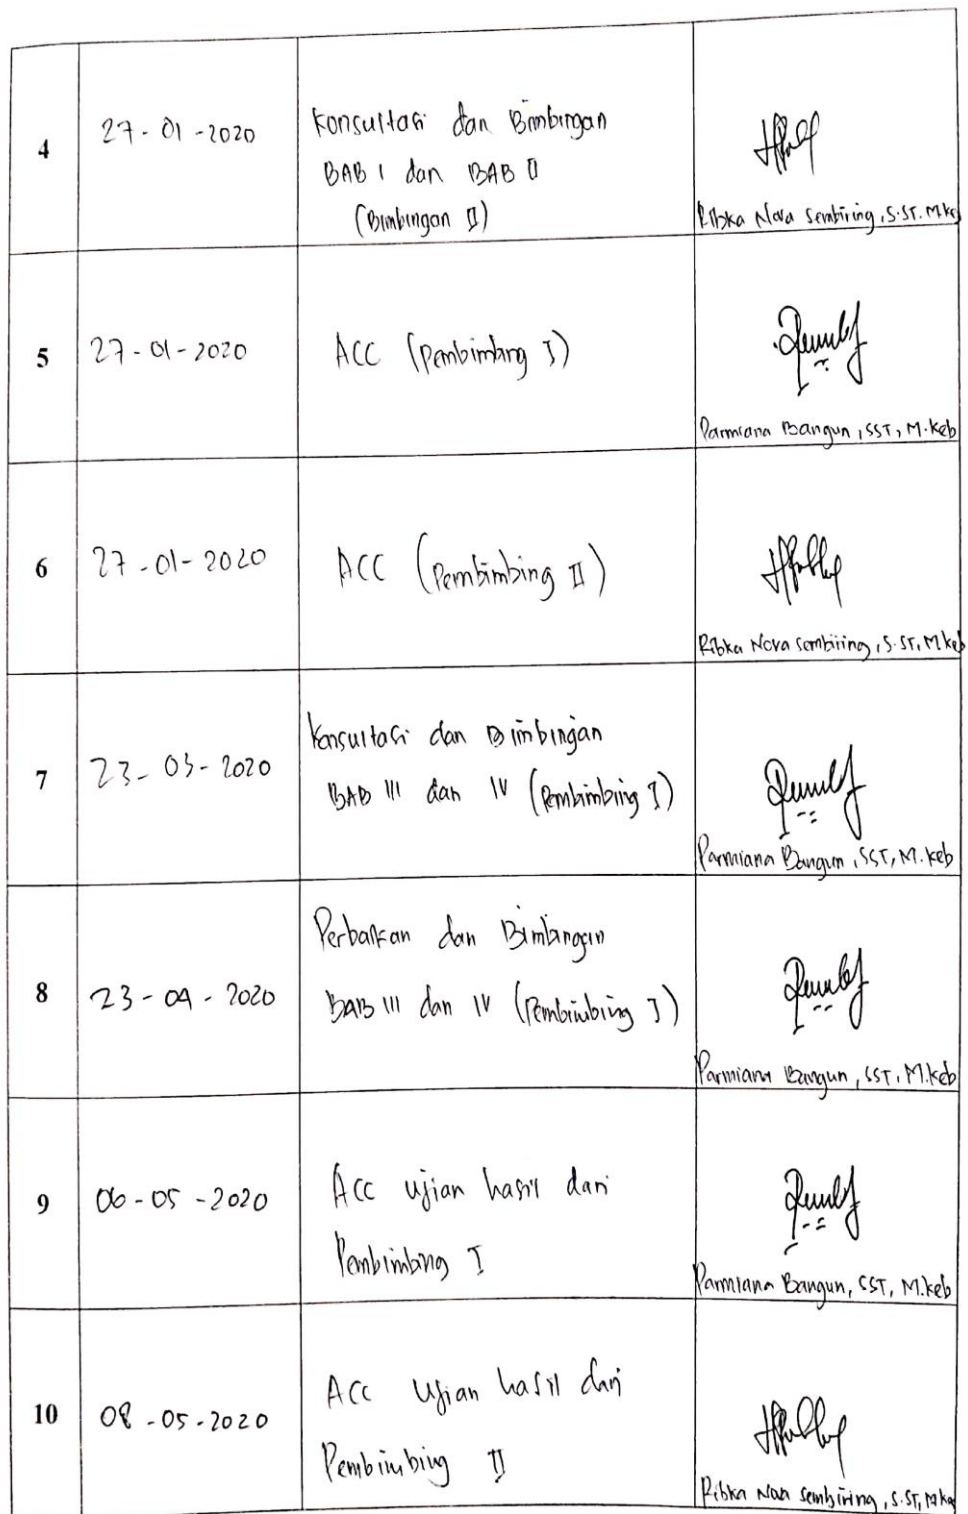 4
27-01-2020
Konsultasi dan Bimbingan
BAB I dan BAB II
(Bimbingan II)
Ribka Nova Sembiring, S.ST. M.Keb
5
27-01-2020
ACC (Pembimbing I)
Parmiana Bangun, SST, M.Keb
6
27-01-2020
ACC (Pembimbing II)
Ribka Nova Sembiring, S.ST, M.Keb
7
23-03-2020
Konsultasi dan Bimbingan
BAB III dan IV (Pembimbing I)
Parmiana Bangun, SST, M.Keb
8
23-04-2020
Perbaikan dan Bimbingan
BAB III dan IV (Pembimbing I)
Parmiana Bangun, SST, M.Keb
9
06-05-2020
ACC ujian hasil dari
Pembimbing I
Parmiana Bangun, SST, M.Keb
10
08-05-2020
ACC Ujian hasil dari
Pembimbing II
Ribka Nova Sembiring, S.ST, M.Keb